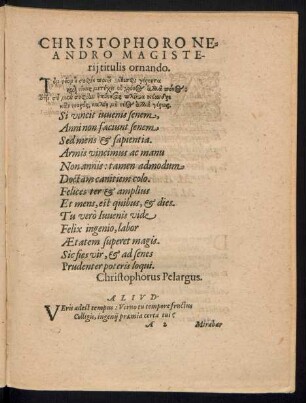 CHRISTOPHORO NE-
ANDRO MAGISTE-
rij titulis ornando.
Si vincit iuuenis senem,
Anni non faciunt senem
Sed mens & sapientia.
Armis vincimus ac manu
Non annis: tamen admodum
Doctam canitiem colo.
Felices ter & amplius
Et mens, est quibus, & dies.
Tu verò Iuuenis vide
Felix ingenio, labor
Ætatem superet magis.
Sic sies vir, & ad senes
Prudenter poteris loqui.
Christophorus Pelargus.
ALIVD.
VEris adest tempus: Verno tu tempore fructus
Colligis, ingenij præmia certa tui?
A 2 Mirabar